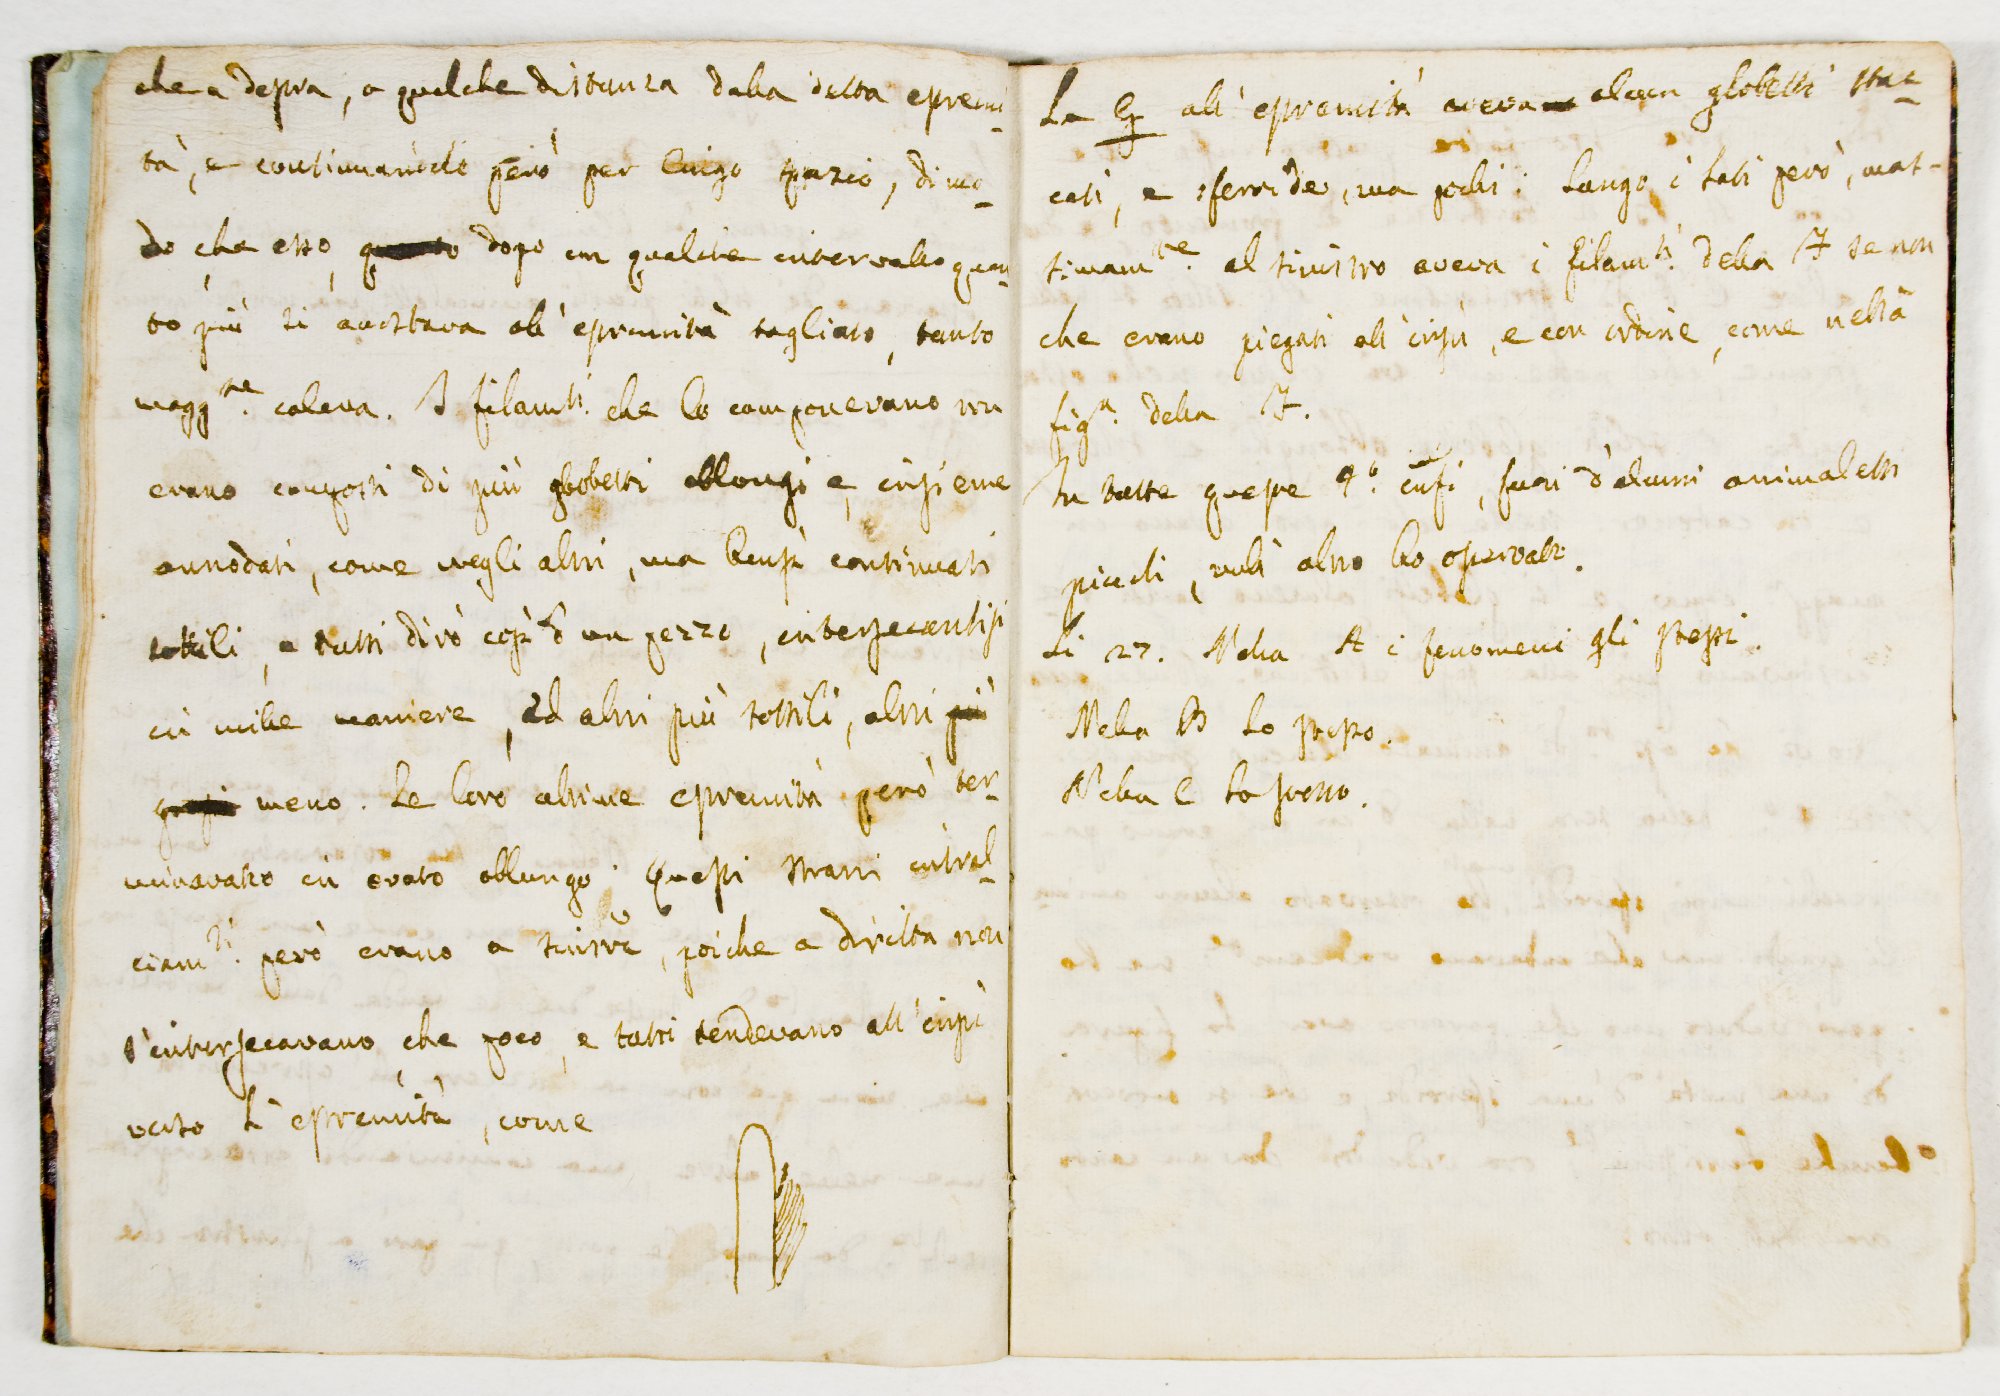 che a destra, a qualche distanza dalla detta estremi-
tà, e continuandosi però per lungo spazio, dimo-
do che esso, dopo un qualche intervallo quan-
to più si accostava all'estremità tagliato, tanto
magg.te calava. I filam.ti che lo componevano non
erano composti di più globetti oblongi e insieme
annodati, come negli altri, ma bensì continuati
sottili, e tutti dirò così d'un pezzo, intersecantisi
in mille maniere, ed altri più sottili, altri più
meno. Le loro ultime estremità però ter-
minavano in ovato oblungo. Questi strani intral-
ciam.ti però erano a sinistra, poiche a diritta non
s'intersecavano, che poco, e tutti tendevano all'insù
verso l'estremità, come
La G all'estremità aveva alcun globetti stac-
cati, e sferoide, ma pochi. Lungo i lati però, mas-
simam.te al sinistro aveva i filam.ti della F se non
che erano piegati all'insù, e con ordine, come nella
fig.a della F.
In tutte queste 4.o infus.i, fuori d'alcuni animaletti
piccoli, null'altro ho osservato.
Li 27. Nella A i fenomeni gli stessi.
Nella B lo stesso.
Nella C lo stesso.